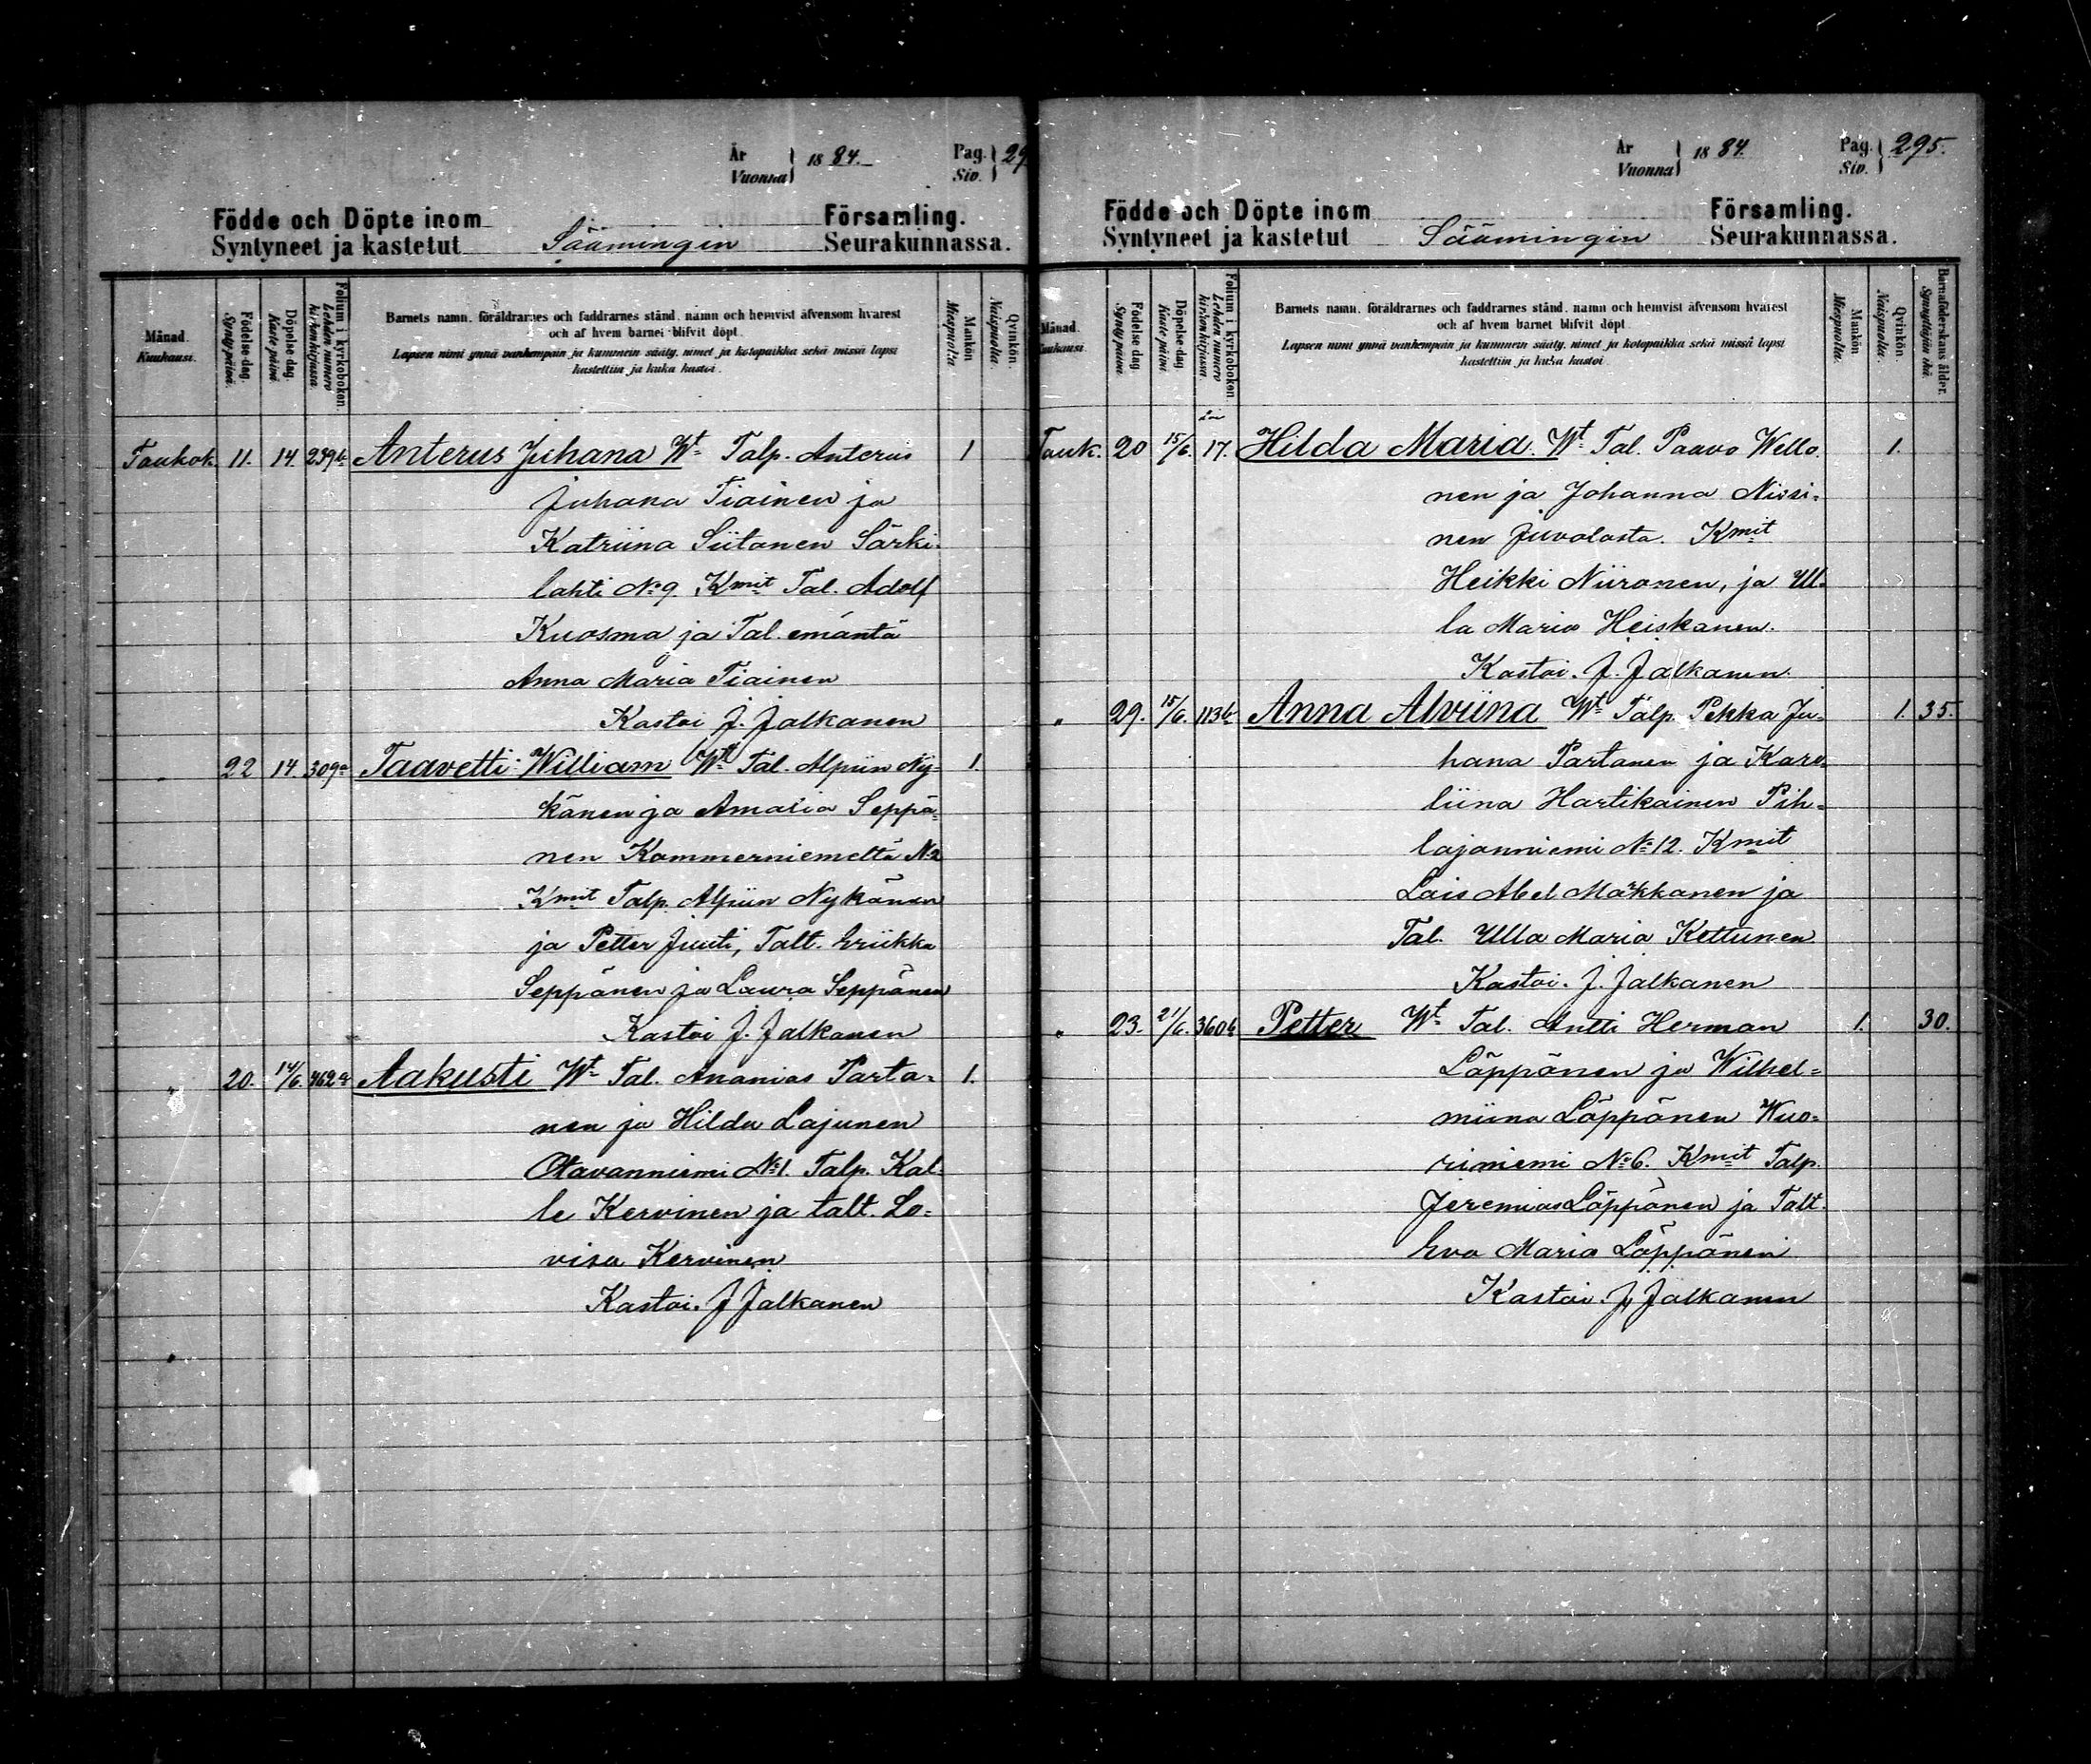 År
Vuonna } 18 84.
Pag.
Siv. } 29
Födde och Döpte inom Församling.
Syntyneet ja kastetut Säämingin Seurakunnassa.
Månad.
Kuukausi.
Födelse dag.
Syntypäivä.
Döpelse dag.
Kaste päivä.
Folium i kyrkoboken.
Lehden numero kirkonkirjassa.
Barnets namn, föräldrarnes och faddrarnes stånd, namn och hemvist äfvensom hvarest
och af hvem barnet blifvit döpt.
Lapsen nimi ynnä vanhempain ja kummein sääty, nimet ja kotopaikka sekä missä lapsi
kastettiin ja kuka kastoi.
Mankön
Miespuolta.
Qvinkön.
Naispuolta.
Toukok. 11. 14 239b. Anterus Juhana Wt Talp. Anterus 1
Juhana Tiainen ja
Katriina Siitonen Särki-
lahti No 9. Kmit Tal. Adolf
Kuosma ja Tal. emäntä
Anna Maria Tiainen
Kastoi J. Jalkanen
22 14. 309a Taavetti William Wt Tal. Alpiin Ny- 1.
känen ja Amalia Seppä-
nen Kommerniemeltä No 2
Kmit Talp. Alpiin Nykänen
ja Petter Juuti, Talt. Eriikka
Seppänen ja Laura Seppänen
Kastoi J. Jalkanen
" 20. 14/6. 462a Aakusti Wt Tal. Ananias Parta- 1.
nen ja Hilda Lajunen
Otavanniemi No 1. Talp. Kal-
le Kervinen ja talt. Lo-
visa Kervinen
Kastoi. J Jalkanen
År
Vuonna } 18 84.
Pag.
Siv. } 295.
Födde och Döpte inom Församling.
Syntyneet ja kastetut Säämingin Seurakunnassa.
Månad.
Kuukausi.
Födelse dag.
Syntypäivä.
Döpelse dag.
Kaste päivä.
Folium i kyrkoboken.
Lehden numero kirkonkirjassa.
Barnets namn, föräldrarnes och faddrarnes stånd, namn och hemvist äfvensom hvarest
och af hvem barnet blifvit döpt.
Lapsen nimi ynnä vanhempain ja kummein sääty, nimet ja kotopaikka sekä missä lapsi
kastettiin ja kuka kastoi.
Mankön
Miespuolta.
Qvinkön.
Naispuolta.
Barnaföderskans ålder.
Synnyttäjän ikä.
Touk. 20 15/6. 17. Hilda Maria. Wt Tal. Paavo Wello- 1.
nen ja Johanna Nissi-
nen Juvolasta. Kmit
Heikki Niironen, ja Ul-
la Maria Heiskanen.
Kastoi. J. Jalkanen.
" 29. 15/6. 113b Anna Alviina Wt Talp. Pekka Ju- 1. 35.
hana Partanen ja Karo-
liina Hartikainen Pih-
lajanniemi No 12. Kmit
Lois Abel Makkanen ja
Tal. Ulla Maria Kettunen
Kastoi. J. Jalkanen
" 23. 21/6. 360b Petter Wt Tal. Antti Herman 1. 30.
Löppönen ja Wilhel-
miina Löppönen Wuo-
riniemi No 6. Kmit Talp.
Jeremias Löppönen ja Talt.
Eva Maria Löppönen
Kastoi. J. Jalkanen